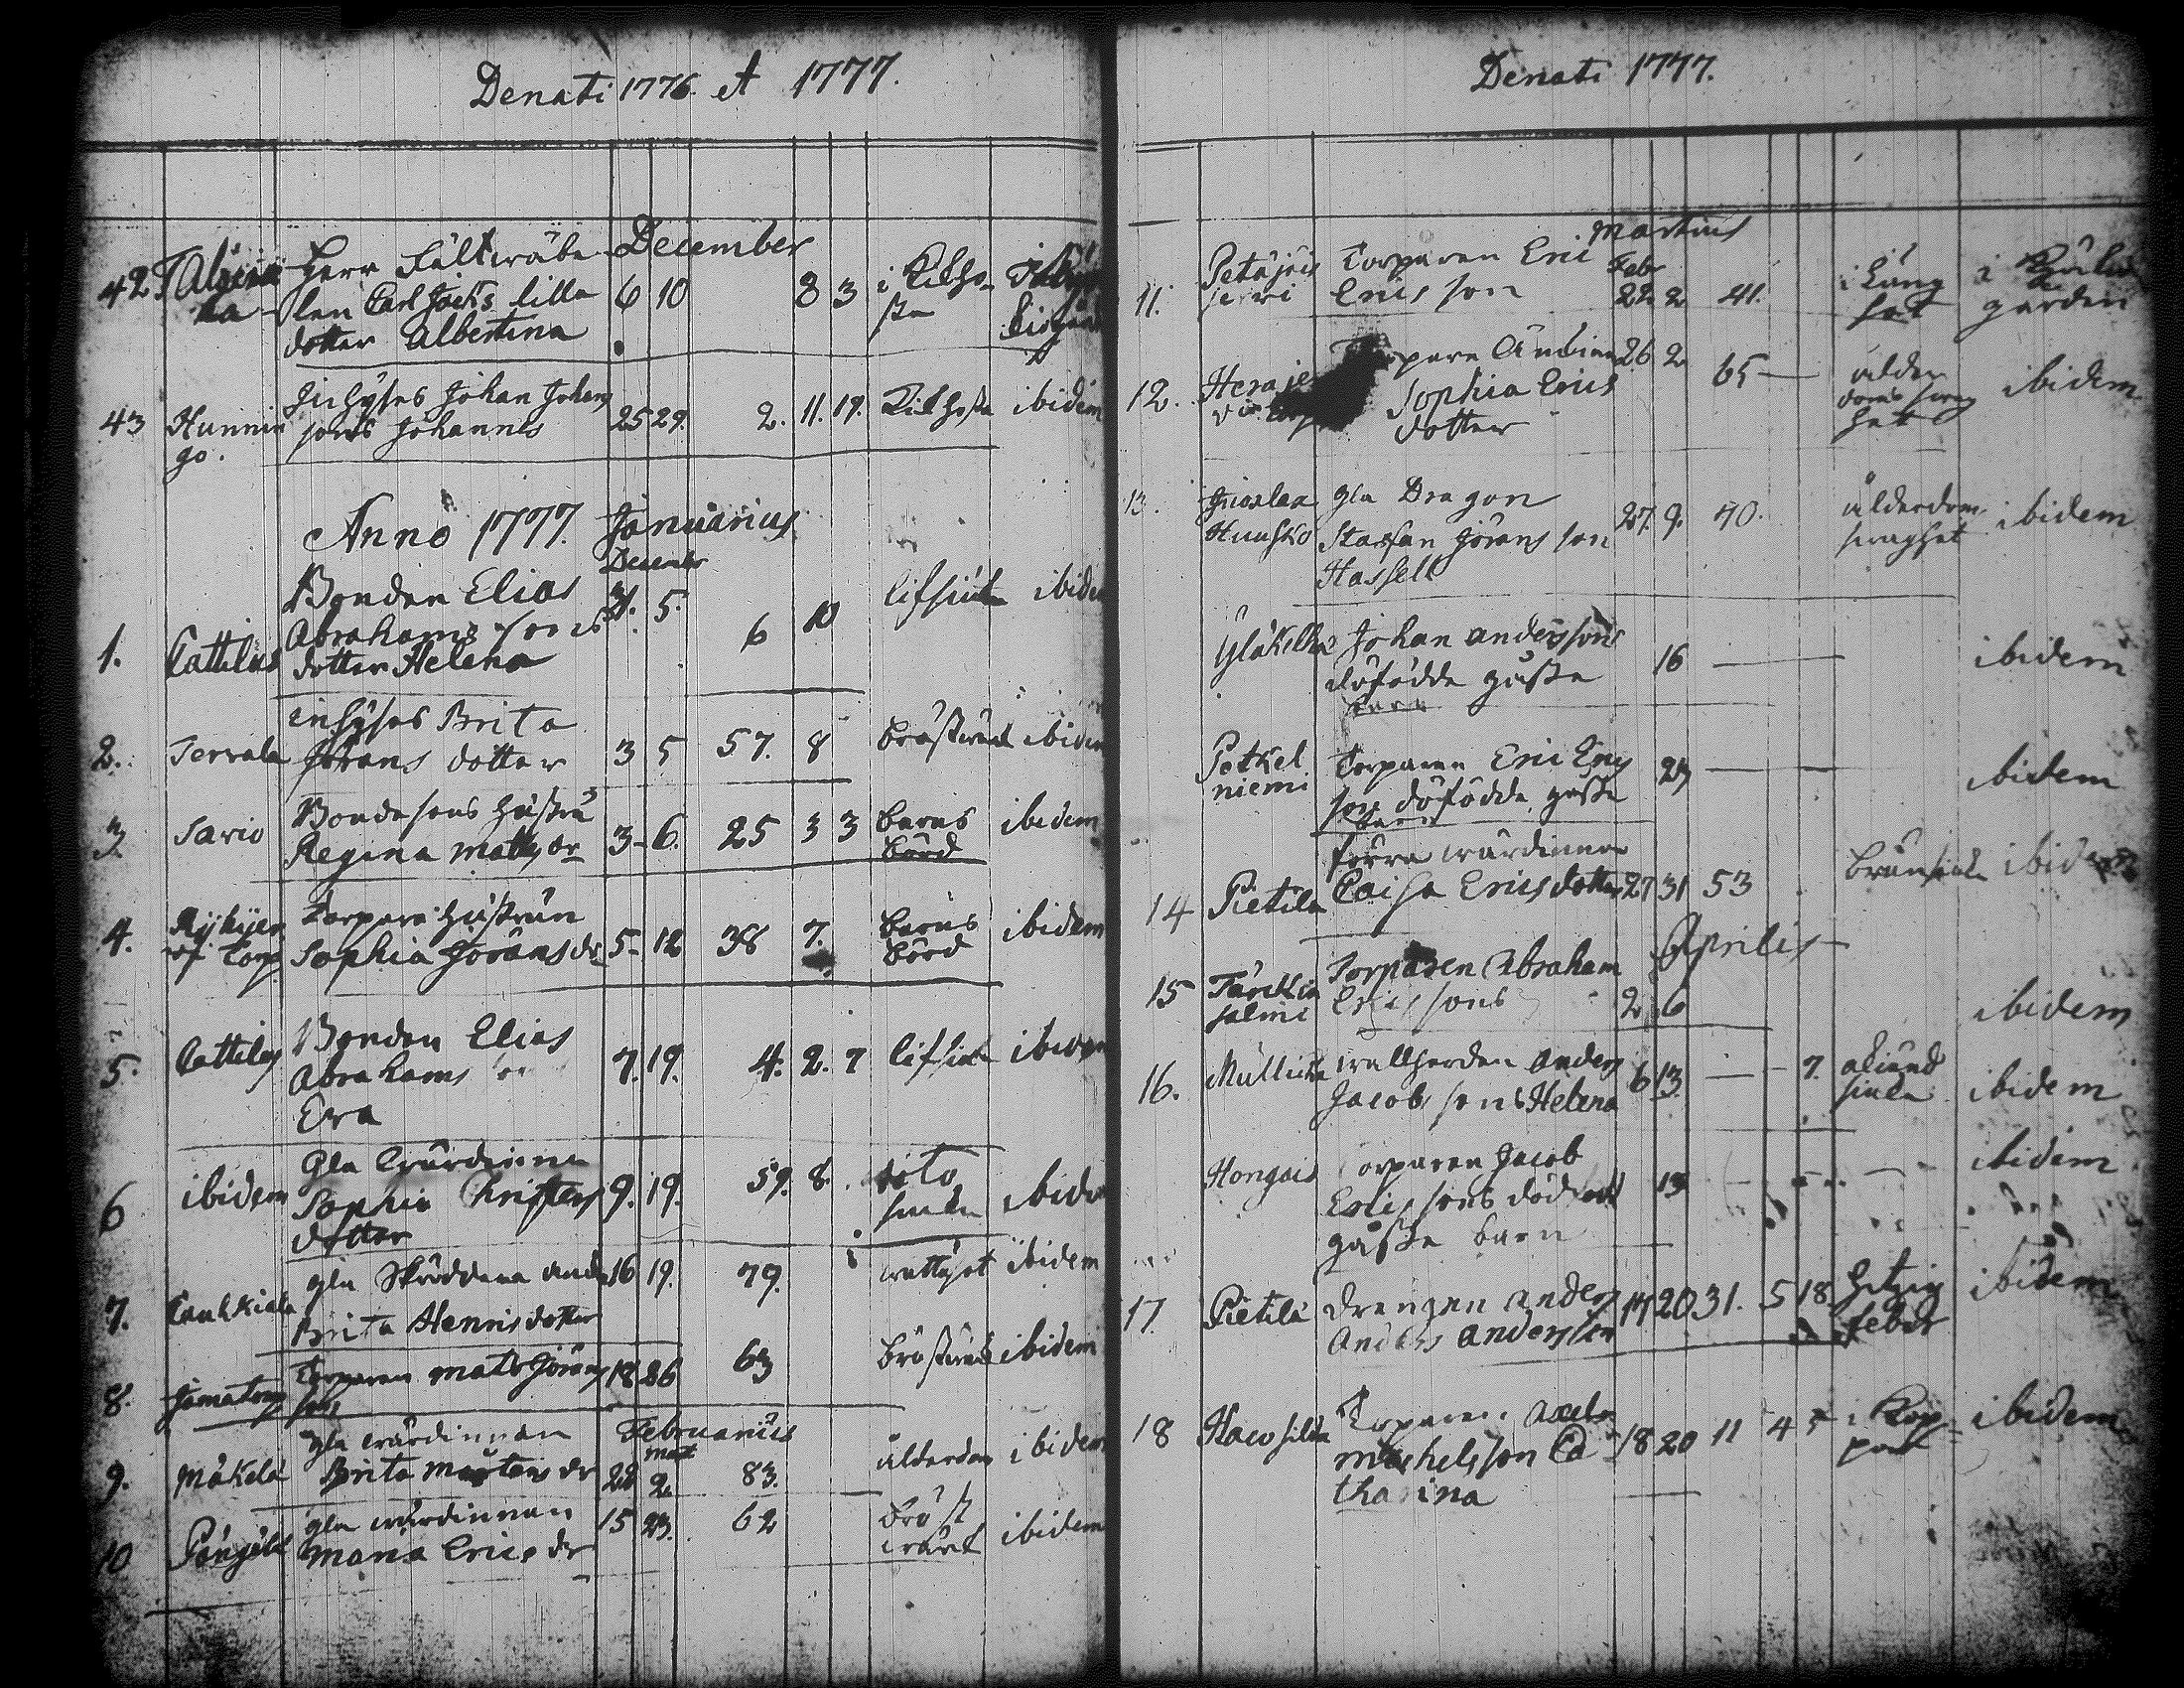 Denati 1776. et 1777.
December
42
Herr Fältwäbe
len Carl Jacks lilla
dotter Albertina
6 10 8 3 i Kikho
sta
43 Hunnin
go.
Inhyses Johan Johans
sons Johannes
25 29. 2. 11. 19. Kikhosta ibidem
Anno 1777. Januarius
Decembr
1. Cattilus
Bonden Elias
Abrahams sons
dotter Helena
31. 5. 6 10 lifsiuka ibidem
2. Tervala
inhyses Brita
Jörans dotter
3 5 57. 8 bröstwärk ibidem
3. Sario
Bondesons hustru
Regina Matts dr
3 6. 25 3 3 barns
börd
ibidem
4.
Torpare hustrun
Sophia Jörans dr
5 12 38 7. barns
börd
ibidem
5. Cattilus
Bonden Elias
Abrahams
Eva
7. 19. 4. 2. 7 lifsiuka ibidem
6 ibidem
Gla wärdinna
Sophia Christers
dotter
9. 19. 59. 8.
siuka ibidem
7.
gla Skräddare
Brita Henrics dotter
16 19. 79. wattusot ibidem
8. Jämä torp
Torparen Mats Jörans
son
18 26 63 bröstwärk ibidem
Februarius
9. Mäkelä
gla wärdinnan
Brita Mårtens dr
22 Mart
2. 83. ålderdom ibidem
10
gla wärdinnan
Maria Erics dr
15 23. 62 bröst
wärk
ibidem
Denati 1777.
Martius
11. Petäjes
järvi
Torparen Eric
Ericsson
Febr
22. 2 41. i lung
sot
i
gården
12.
Sophia Erics
dotter
26 2 65 ålder
doms swag
het
ibidem
13.
Huusko
gla Dragon
Staffan Jörans son
Hassell
27. 9. 70. ålderdoms
swaghet
ibidem
Yläkellu
Johan Anderssons
döfödde gåsse
barn
16 ibidem
Potkel
niemi
Torparen Eric Erics
son döfödde gåsse
barn
23 ibidem
14 Pietilä
förra wärdinnan
Caisa Ericsdotter
27 31 53 brännsiuka ibidem
Aprilis
15
salmi
Torparen Abraham
Erics sons
2 6 ibidem
16.
wallherden Anders
Jacobs sons Helena
6 13. 7. okiänd
siuka
ibidem
Hongais
Torparen Jacob
Erics sons
gåsse barn
13 ibidem
17. Pietilä
Drengen Anders
Anders Andersson
17 20 31. 5 18. hetzig
feber
ibidem
18
Torparen Axel
Michelsson Ca
tharina
18 20 11 4 i Kop
por
ibidem